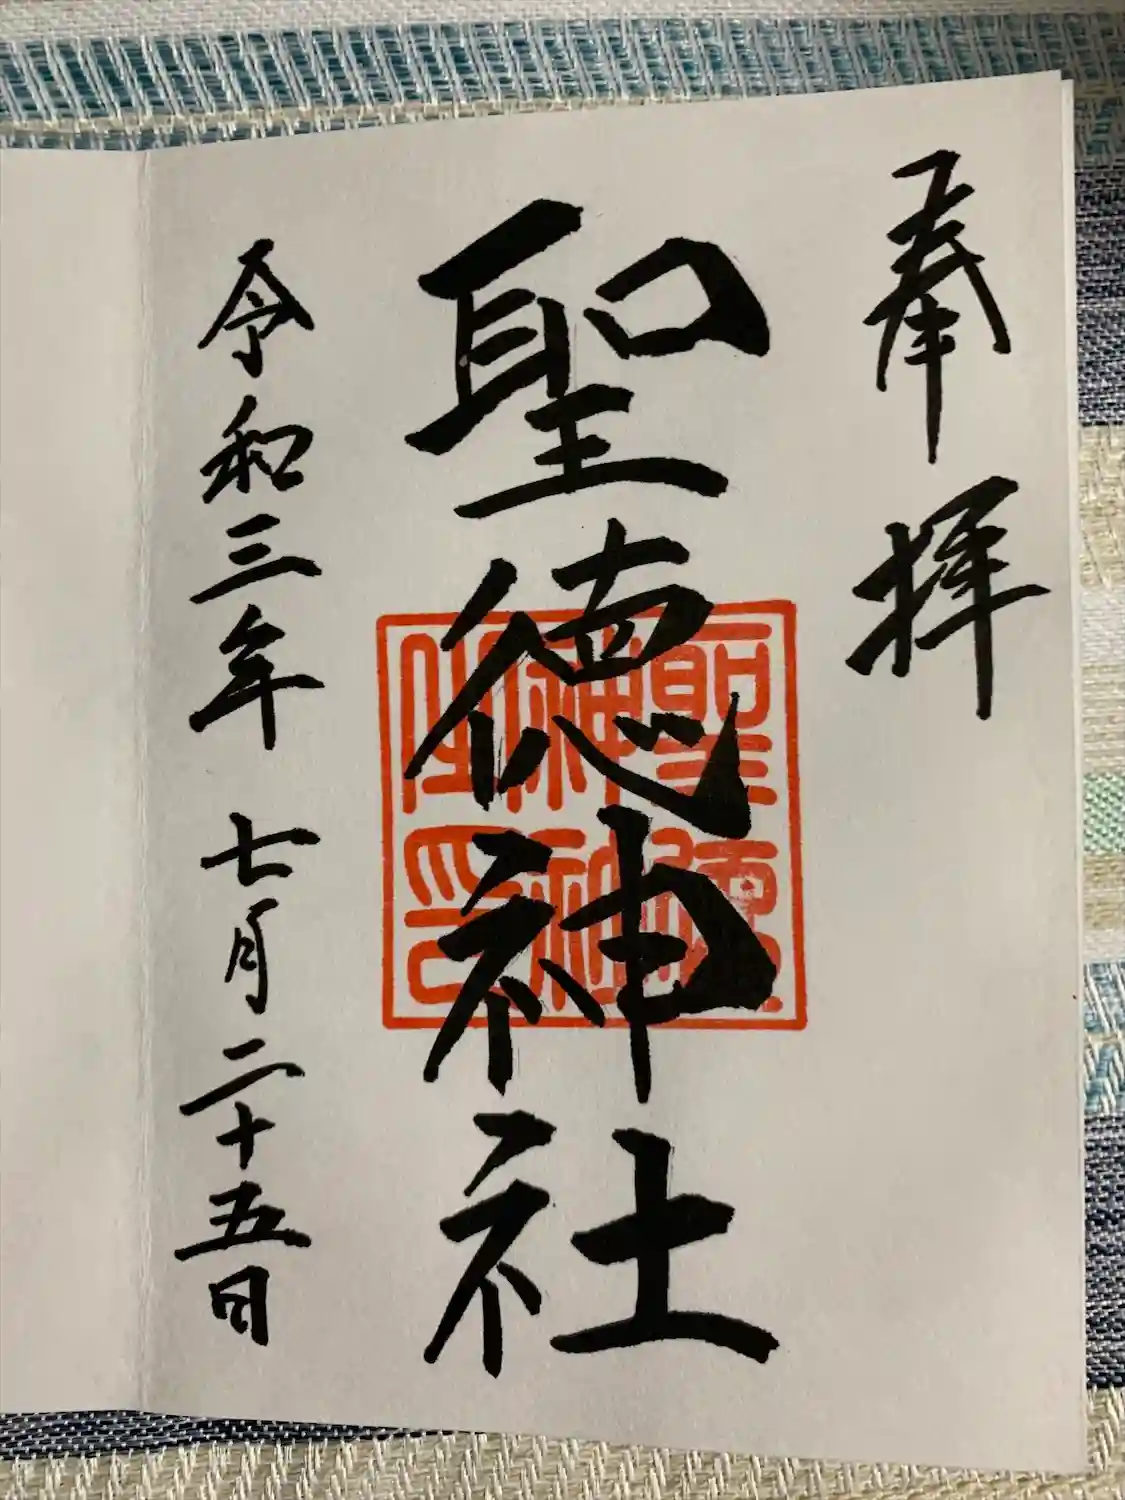 奉拝
聖徳神社
聖徳
神社
之印
令和三年七月二十五日